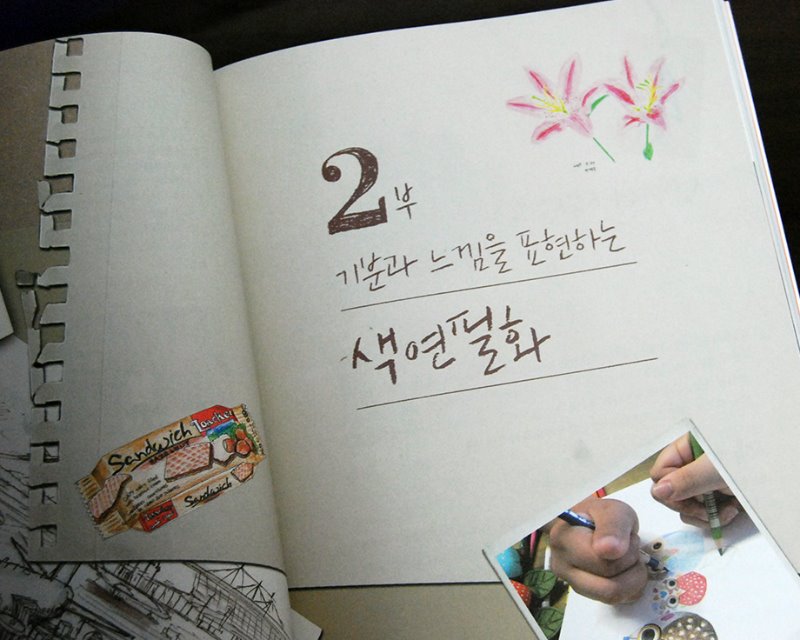 2부
기분과 느낌을 표현하는
색연필화
Sandwich
Sandwich